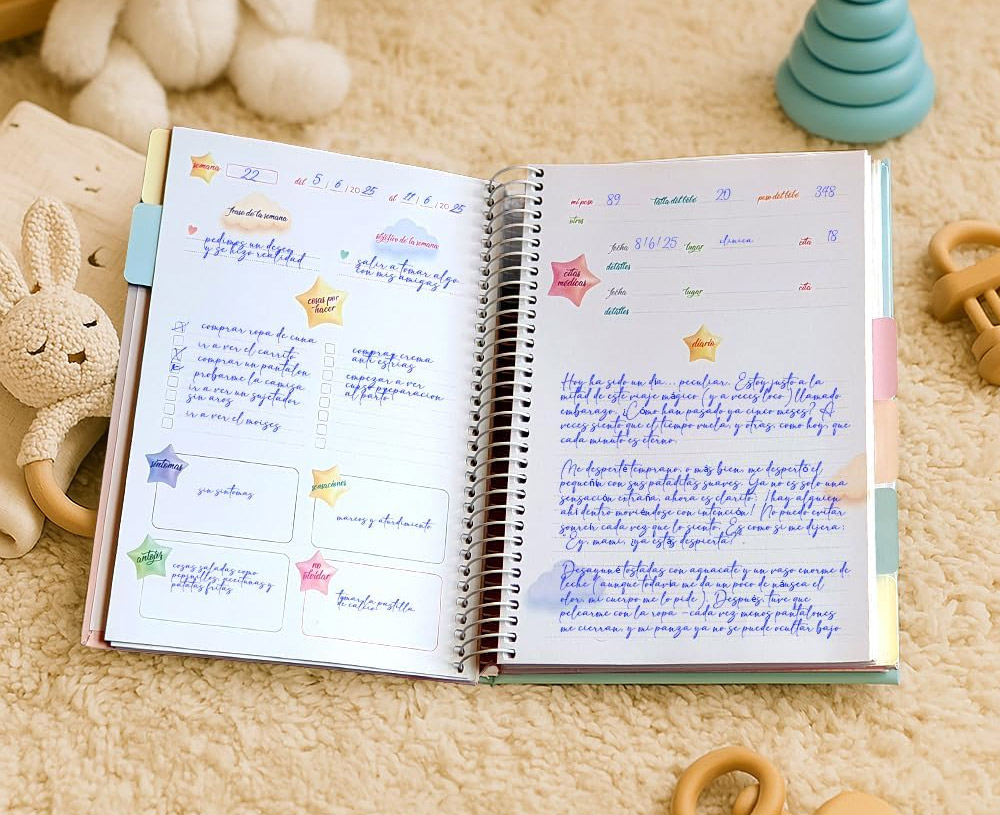 semana 22 del 5 / 6 / 2025 al 11 / 6 / 2025
frase de la semana
pedimos un deseo
y se hizo realidad
objetivo de la semana
salir a tomar algo
con mis amigas
cosas por
hacer
comprar ropa de cuna
ir a ver el carrito
comprar un pantalon
probarme la camisa
ir a ver un sujetador
sin aros
ir a ver el moises
comprar crema
anti estrias
empezar a ver
curso preparacion
al parto
síntomas
sin sintomas
sensaciones
mareos y aturdimiento
antojos
cosas saladas como
pepinillos, aceitunas y
patatas fritas
no
olvidar
tomar la pastilla
de calcio
mi peso 89 talla del bebé 20 peso del bebé 348
otros
citas
médicas
fecha 8/6/25 lugar clinica cita 18
detalles
fecha lugar cita
detalles
diario
Hoy ha sido un día... peculiar. Estoy justo a la
mitad de este viaje mágico (y a veces loco) llamado
embarazo. ¿Cómo han pasado ya cinco meses? A
veces siento que el tiempo vuela, y otras, como hoy, que
cada minuto es eterno.
Me desperté temprano, o más bien, me despertó el
pequeñín con sus pataditas suaves. Ya no es solo una
sensación extraña, ahora es clarito: ¡hay alguien
ahí dentro moviéndose con intención! No puedo evitar
sonreír cada vez que lo siento. Es como si me dijera:
"Ey, mami, ¿ya estás despierta?".
Desayuné tostadas con aguacate y un vaso enorme de
leche (aunque todavía me da un poco de náusea el
olor, mi cuerpo me lo pide). Después, tuve que
pelearme con la ropa – cada vez menos pantalones
me cierran, y mi panza ya no se puede ocultar bajo